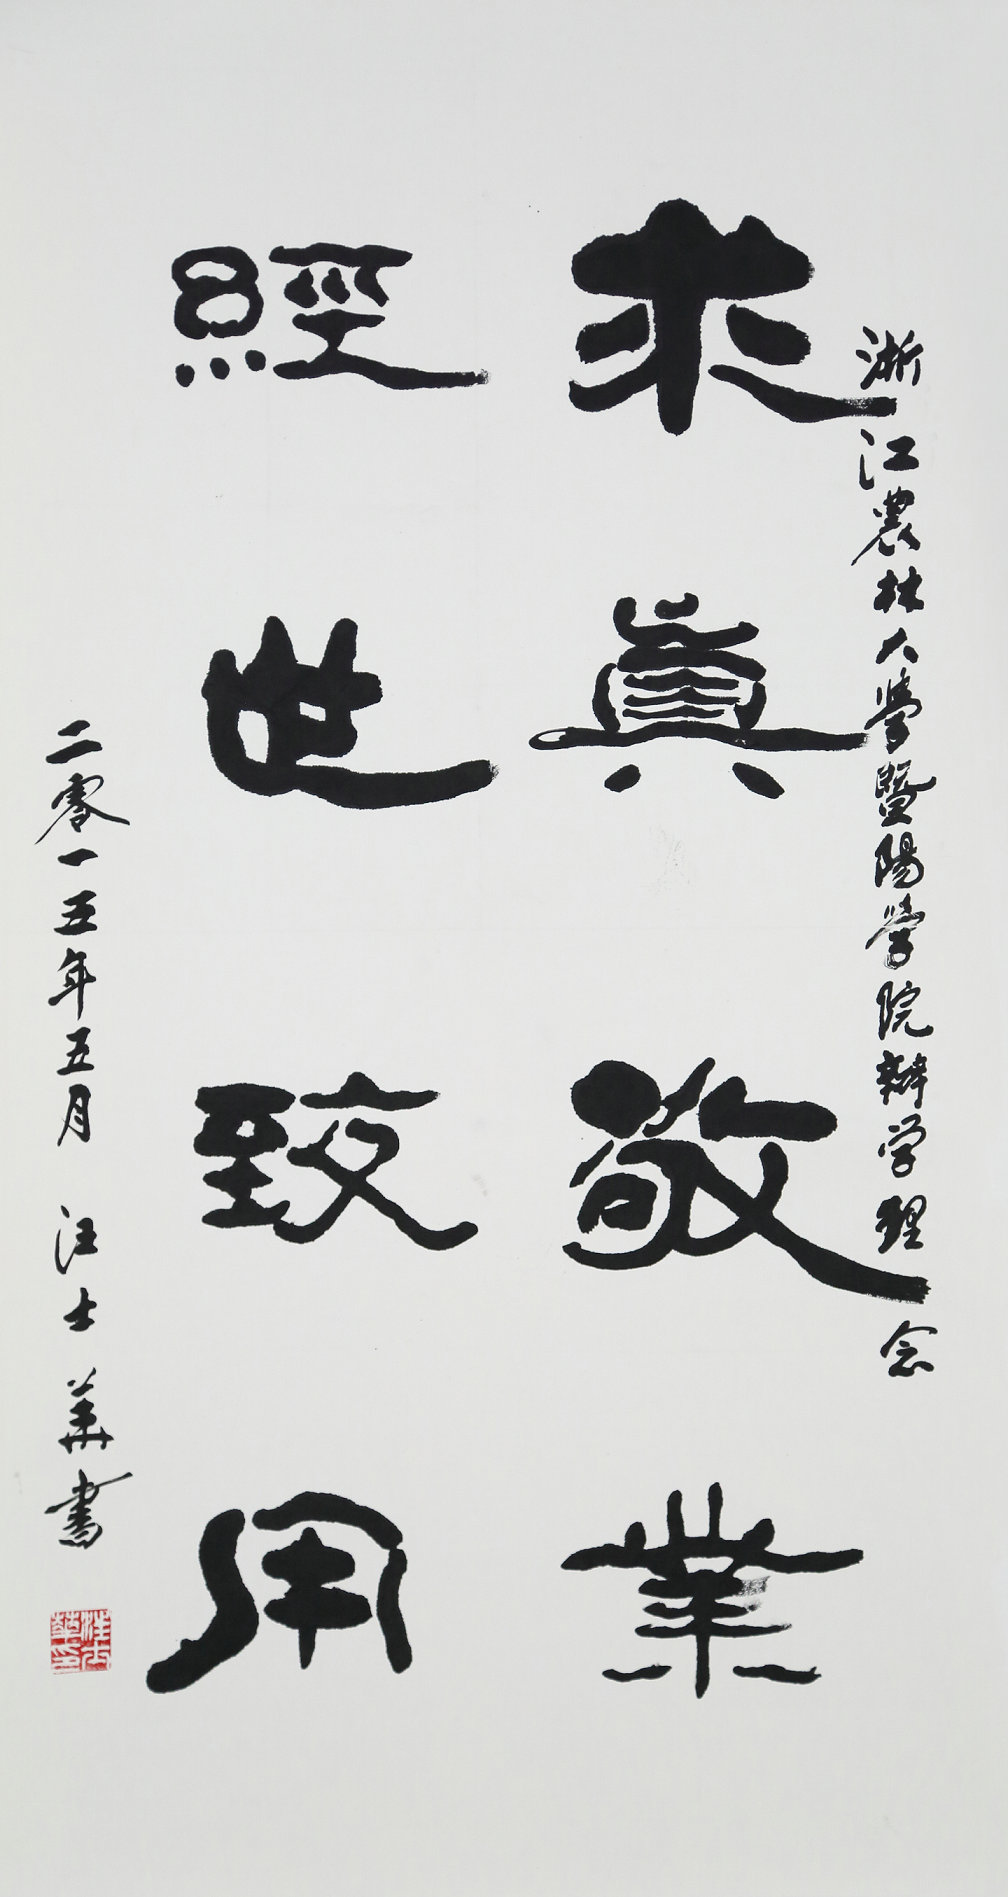 浙江農林大學暨陽學院辦学理念
求真敬業
經世致用
二零一五年五月 汪士華書
汪士華印